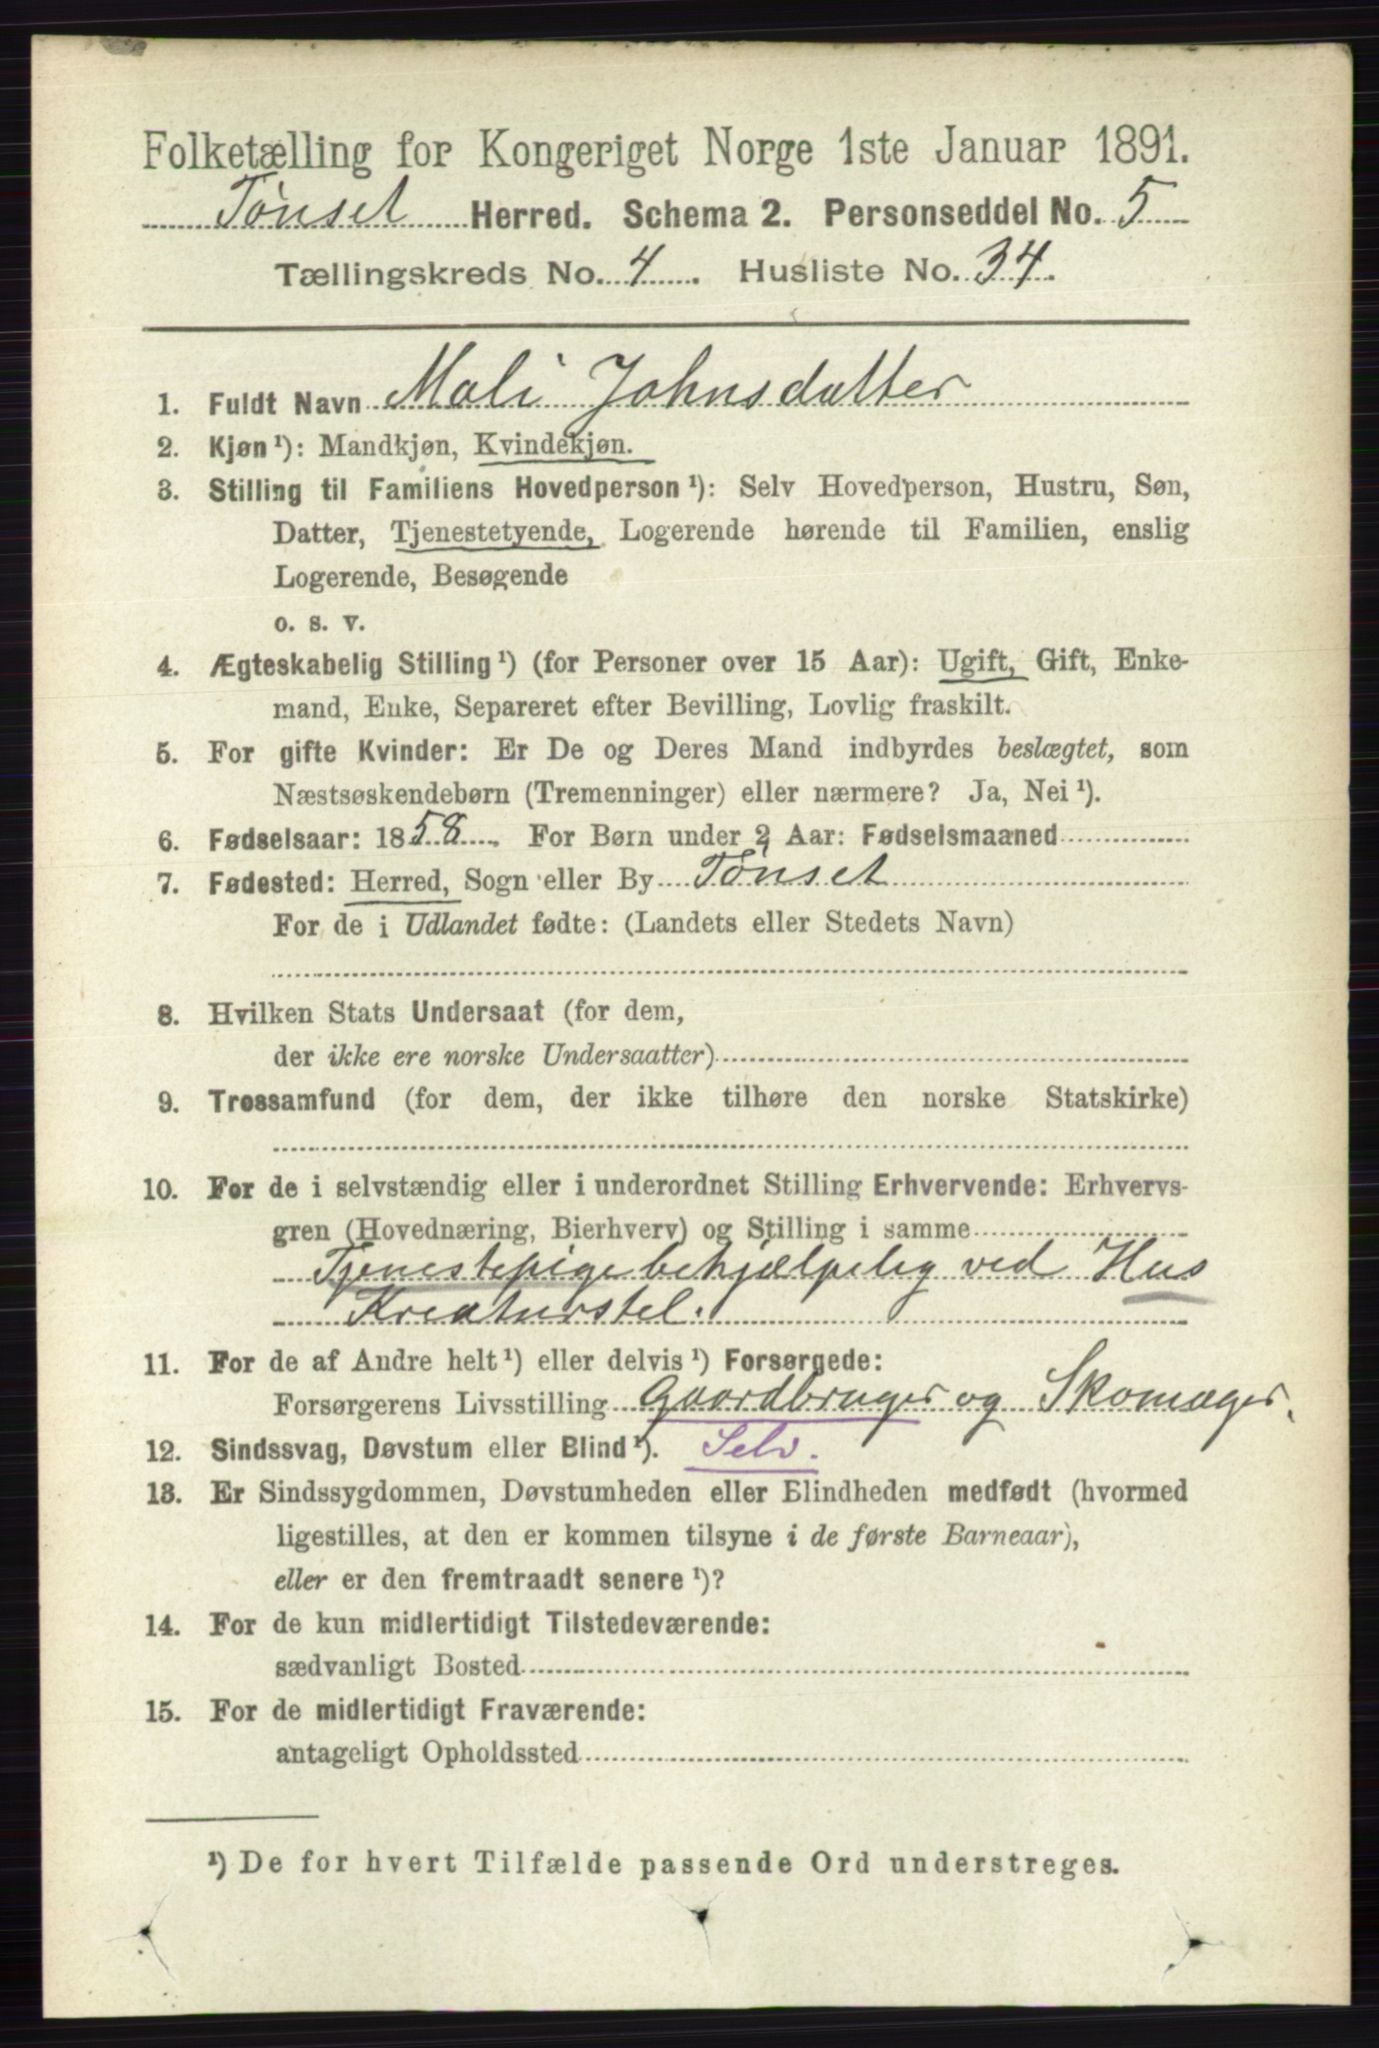 Folketælling for Kongeriget Norge 1ste Januar 1891.
Tønset Herred. Schema 2. Personseddel No. 5
Tællingskreds No. 4. Husliste No. 34.
1. Fuldt Navn Mali Johnsdatter
2. Kjøn ¹): Mandkjøn, Kvindekjøn.
3. Stilling til Familiens Hovedperson ¹): Selv Hovedperson, Hustru, Søn,
Datter, Tjenestetyende, Logerende hørende til Familien, enslig
Logerende, Besøgende
o. s. v.
4. Ægteskabelig Stilling ¹) (for Personer over 15 Aar): Ugift, Gift, Enke-
mand, Enke, Separeret efter Bevilling, Lovlig fraskilt.
5. For gifte Kvinder: Er De og Deres Mand indbyrdes beslægtet, som
Næstsøskendebørn (Tremenninger) eller nærmere? Ja, Nei ¹).
6. Fødselsaar: 1858. For Børn under 2 Aar: Fødselsmaaned
7. Fødested: Herred, Sogn eller By Tönset
For de i Udlandet fødte: (Landets eller Stedets Navn)
8. Hvilken Stats Undersaat (for dem,
der ikke ere norske Undersaatter)
9. Trossamfund (for dem, der ikke tilhøre den norske Statskirke)
10. For de i selvstændig eller i underordnet Stilling Erhvervende: Erhvervs-
gren (Hovednæring, Bierhverv) og Stilling i samme
Tjenestepige behjælpelig ved Hus
Kreaturstel.
11. For de af Andre helt ¹) eller delvis ¹) Forsørgede:
Forsørgerens Livsstilling Gaardbruger og Skomager.
12. Sindssvag, Døvstum eller Blind ¹). Selv.
13. Er Sindssygdommen, Døvstumheden eller Blindheden medfødt (hvormed
ligestilles, at den er kommen tilsyne i de første Barneaar),
eller er den fremtraadt senere ¹)?
14. For de kun midlertidigt Tilstedeværende:
sædvanligt Bosted
15. For de midlertidigt Fraværende:
antageligt Opholdssted
¹) De for hvert Tilfælde passende Ord understreges.